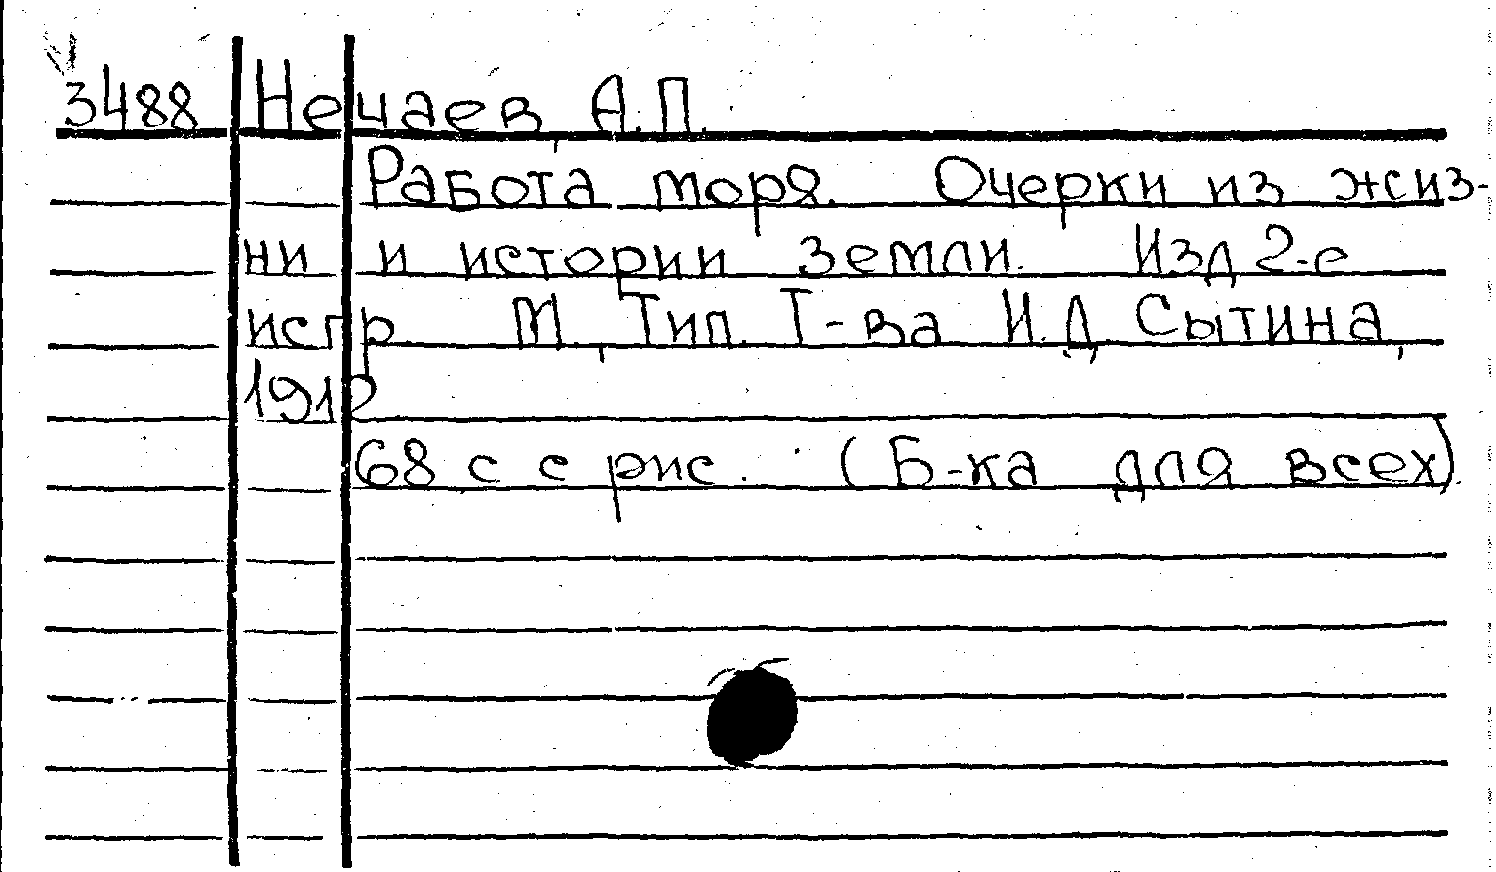 3488 Нечаев А.П.
Работа моря. Очерки из жиз-
ни и истории Земли. Изд 2-е
испр. М., Тип. Т-ва И.Д Сытина,
1912
68 с с рис. (Б-ка для всех).